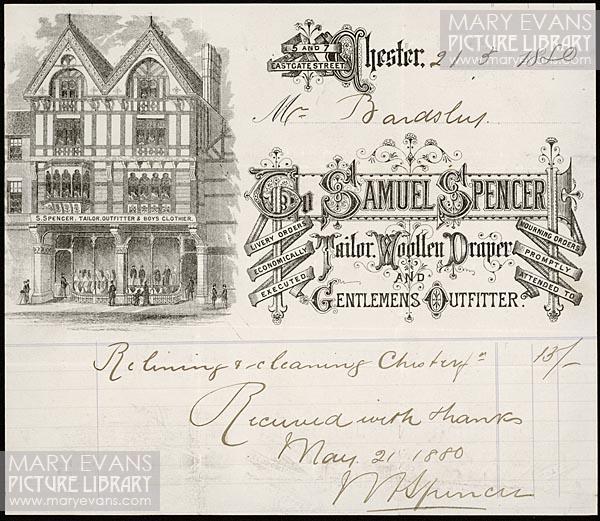 MARY EVANS
PICTURE LIBRARY
www.maryevans.com
5 AND 7
EASTGATE STREET,
Chester, 21 5 1880
Mr Bardsley.
S. SPENCER. TAILOR. OUTFITTER & BOYS CLOTHIER.
To SAMUEL SPENCER
LIVERY ORDERS
ECONOMICALLY
EXECUTED.
Tailor. Woollen Draper
AND
GENTLEMENS OUTFITTER.
MOURNING ORDERS
PROMPTLY
ATTENDED TO
Relining & cleaning Chesterfn 13/-
Received with thanks
May 21 1880
Spencer
MARY EVANS
PICTURE LIBRARY
www.maryevans.com
MARY EVANS
PICTURE LIBRARY
www.maryevans.com